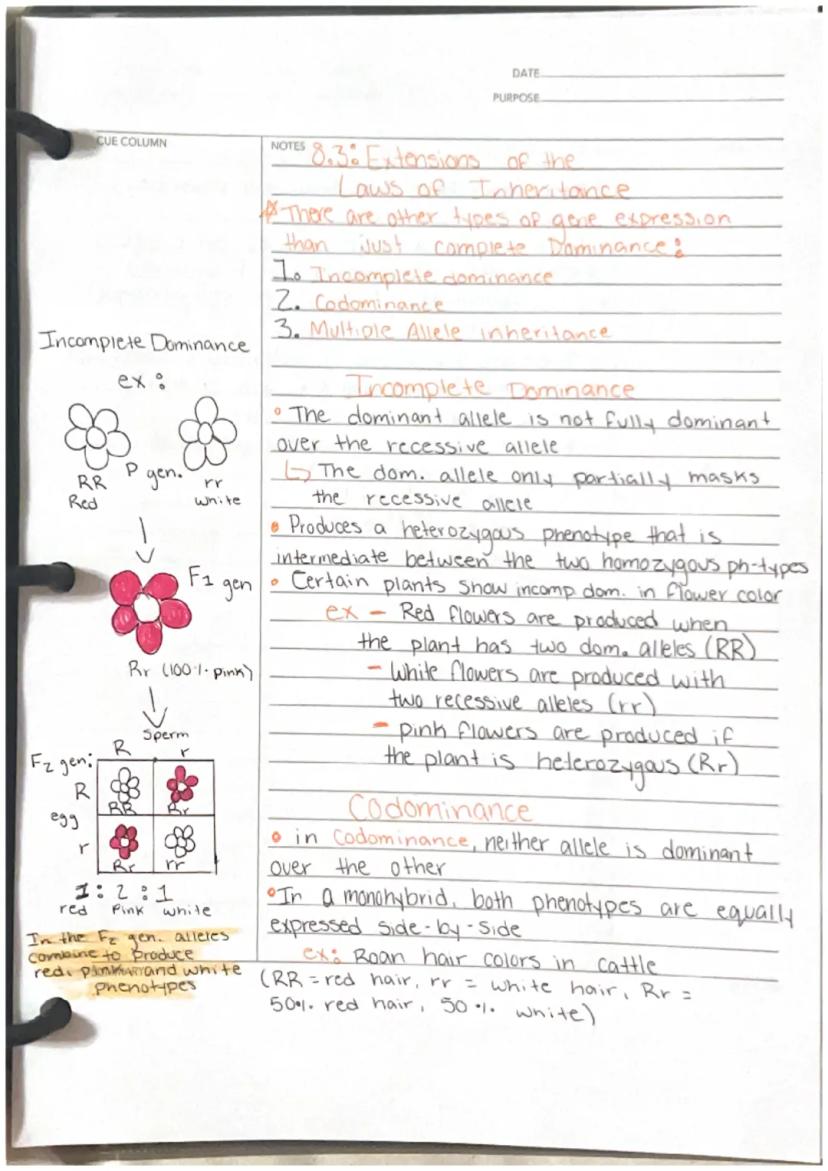 DATE
PURPOSE
CUE COLUMN
NOTES 8.3: Extensions of the
Laws of Inheritance
* There are other types of gene expression
than just complete Dominance:
1. Incomplete dominance
2. Codominance
3. Multiple Allele inheritance
Incomplete Dominance
ex:
RR P gen. rr
Red white
F1 gen
Rr (100% pink)
Sperm
F2 gen: R r
R RR Rr
egg
r Rr rr
1 : 2 : 1
red Pink white
In the F2 gen. alleles
combine to produce
red, and white
phenotypes
Incomplete Dominance
• The dominant allele is not fully dominant
over the recessive allele
↳ The dom. allele only partially masks
the recessive allele
• Produces a heterozygous phenotype that is
intermediate between the two homozygous ph-types
• Certain plants show incomp dom. in flower color
ex - Red flowers are produced when
the plant has two dom. alleles (RR)
- White flowers are produced with
two recessive alleles (rr)
- pink flowers are produced if
the plant is heterozygous (Rr)
Codominance
• in Codominance, neither allele is dominant
over the other
• In a monohybrid, both phenotypes are equally
expressed side-by-side
ex: Roan hair colors in cattle
(RR = red hair, rr = white hair, Rr =
50% red hair, 50% white)